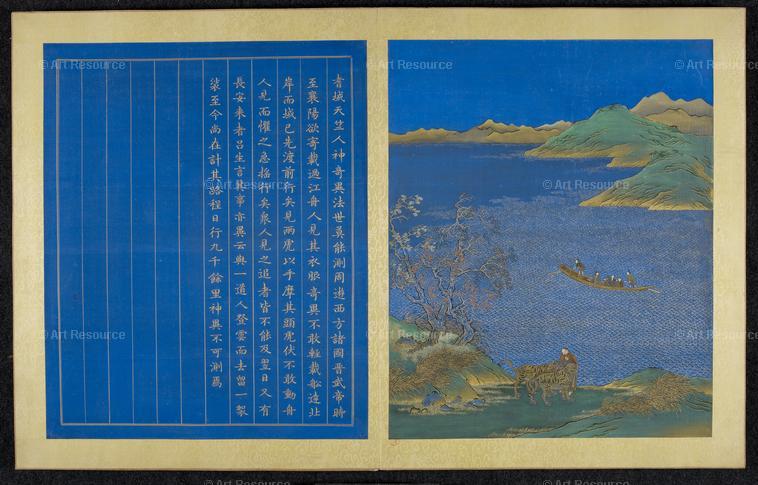 © Art Resource © Art Resource © Art Resource © Art Resource © Art Resource
耆域天竺人神奇異法世莫能測周遊西方諸國晉武帝時
至襄陽欲寄載過江舟人見其衣服奇異不敢輕載船達北
岸而域已先渡前行矣見兩虎以手摩其頭虎伏不敢動舟
人見而懼之急搖行矣衆人見之追者皆不能及翌日又有
長安來者呂生言其事亦異云與一道人登雲而去留一
裟至今尚在計其路程日行九千餘里神異不可測焉
© Art Resource © Art Resource © Art Resource © Art Resource © Art Resource
© Art Resource © Art Resource © Art Resource © Art Resource © Art Resource
© Art Resource © Art Resource © Art Resource